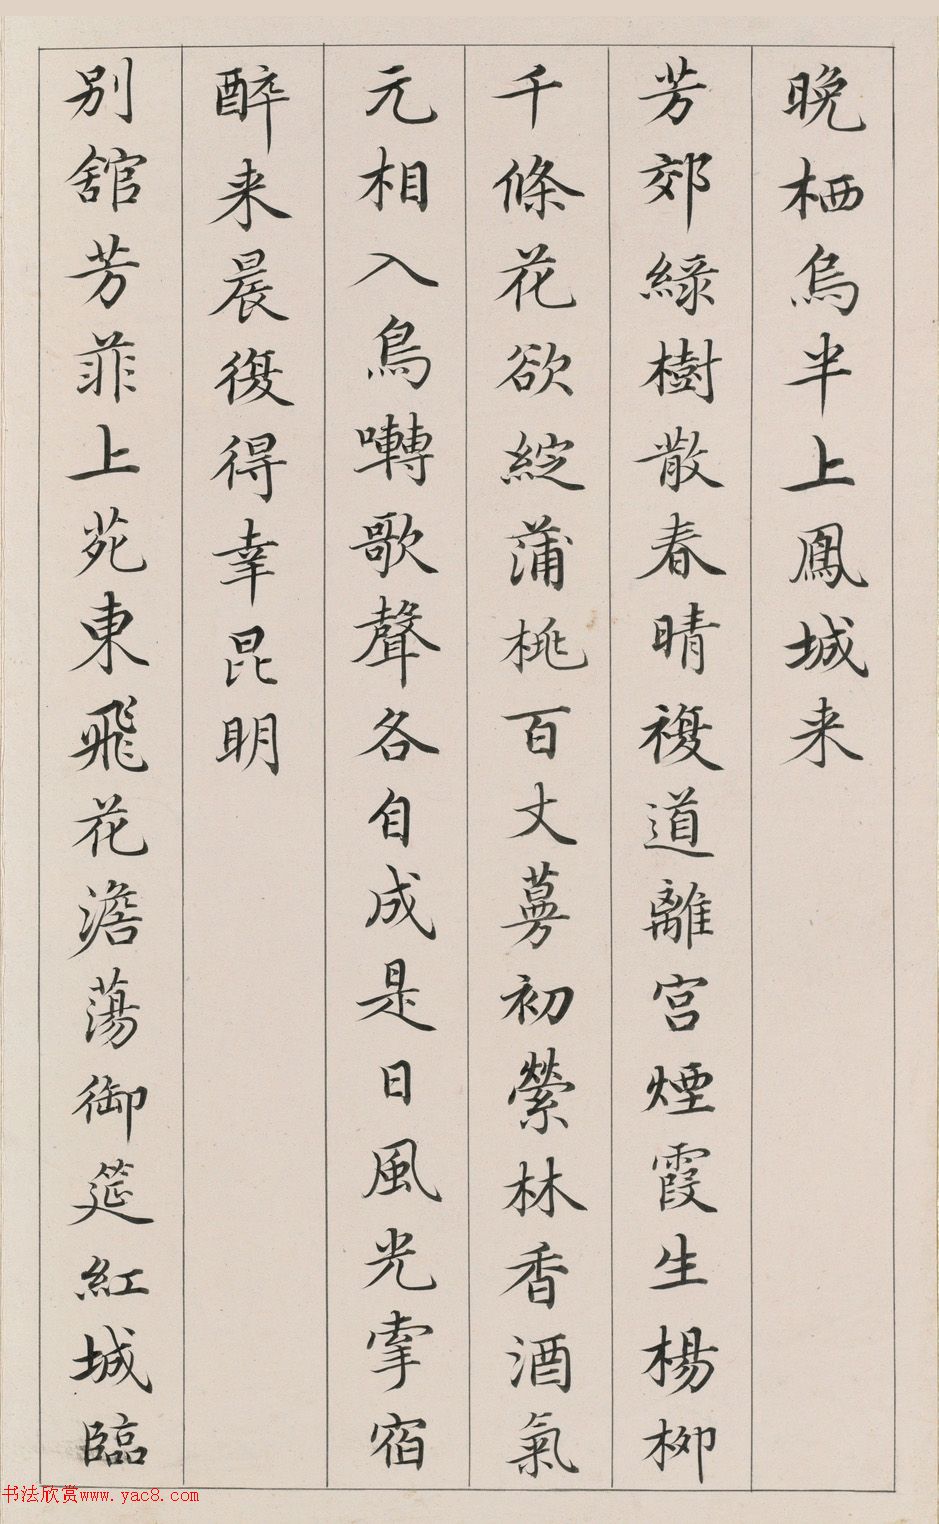 晚栖烏半上鳳城来
芳郊綠樹散春晴複道離宮煙霞生楊柳
千條花欲綻蒲桃百丈蔓初縈林香酒氣
元相入鳥囀歌聲各自成是日風光掌宿
醉来晨復得幸昆明
別舘芳菲上苑東飛花澹蕩御筵紅城臨
书法欣赏www.yac8.com